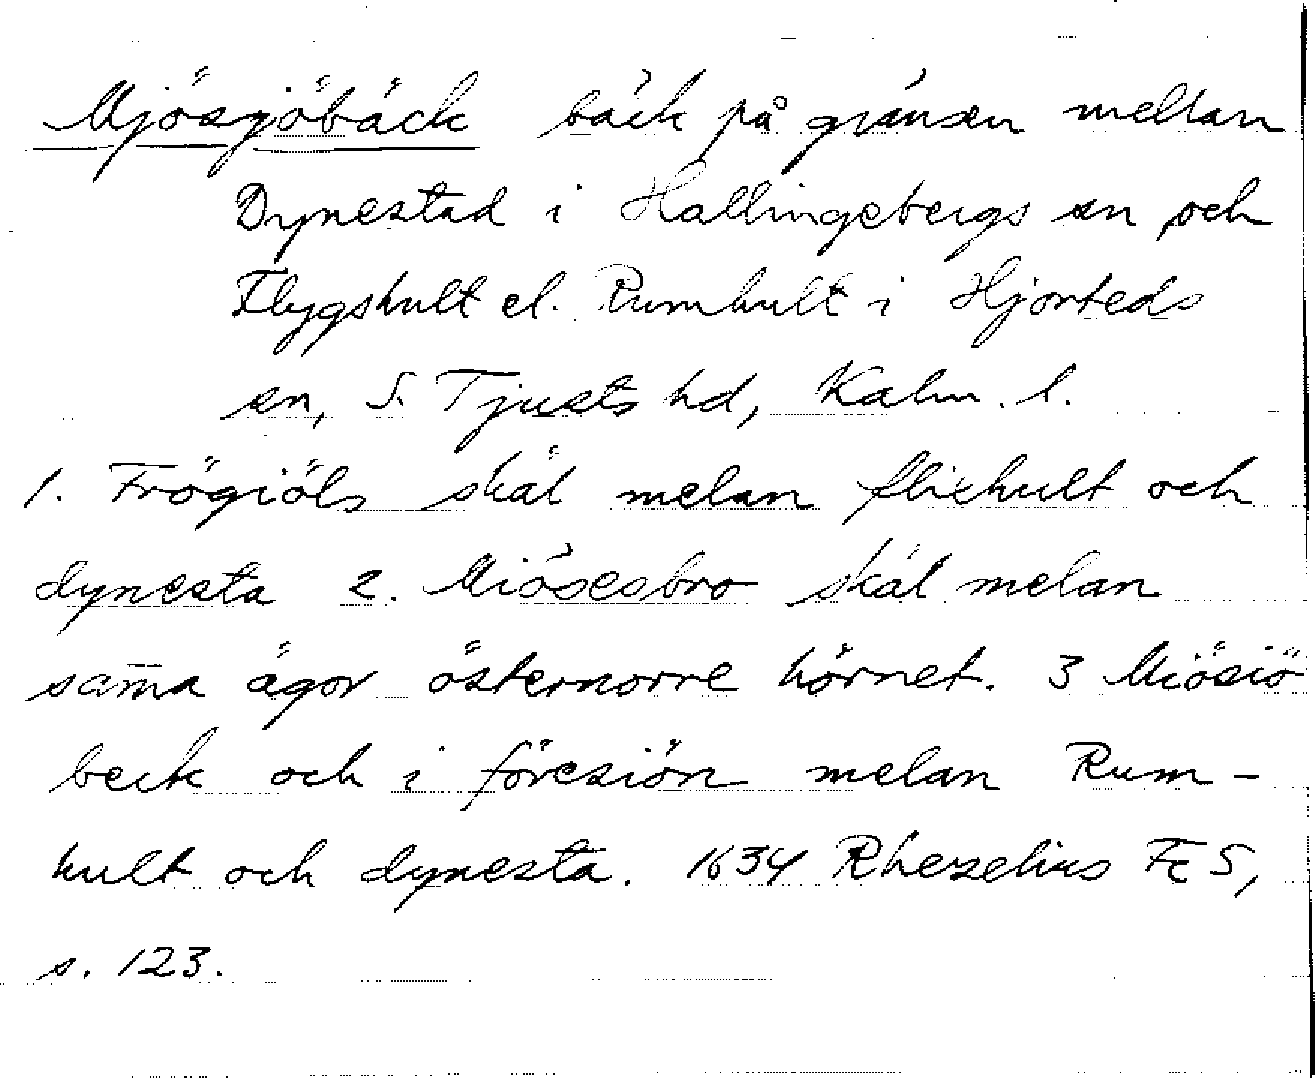 Mjösjöbäck bäck på gränsen mellan
Dynestad i Hallingebergs sn och
Flygshult el. Rumhult i Hjorteds
sn, S. Tjusts hd, Kalm. l.
1. Frögiöls skäl melan flixhult och
dynesta 2. Miösesbro skäl melan
sam̄a ägor östernorre hörnet. 3 Miösiö
beck och i föresiön melan Rum-
hult och dynesta. 1634 Rhezelius Fc 5,
s. 123.